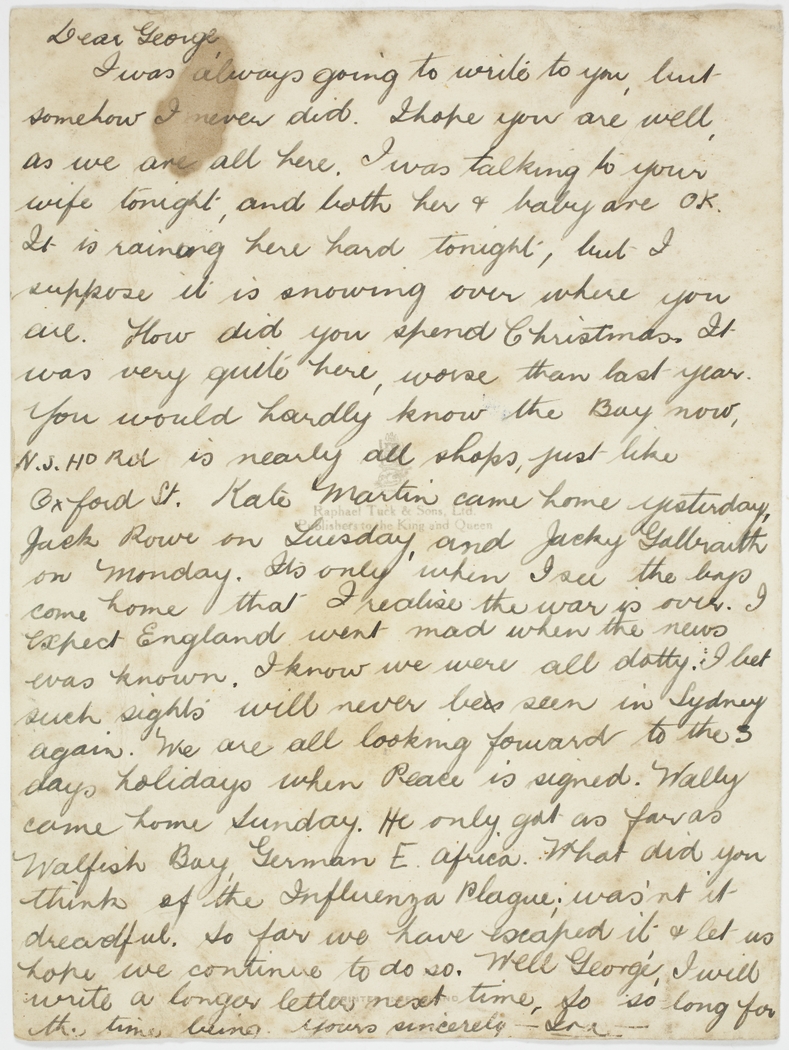 Dear George,
I was always going to write to you, but
somehow I never did. I hope you are well,
as we are all here. I was talking to your
wife tonight, and both her & baby are OK.
It is raining here hard tonight, but I
suppose it is snowing over where you
are. How did you spend Christmas. It
was very quite here, worse than last year.
You would hardly know the Bay now,
N.S. HD Rd is nearly all shops, just like
Oxford St. Kate Martin came home yesterday,
Raphael Tuck & Sons, Ltd.
Publishers to the King and Queen
Jack Rowe on Tuesday, and Jacky Galbraith
on Monday. Its only when I see the boys
come home that I realise the war is over. I
expect England went mad when the news
was known. I know we were all dotty. I bet
such sights will never be seen in Sydney
again. We are all looking forward to the 3
days holidays when Peace is signed. Wally
came home Sunday. He only got as far as
Walfish Bay, German E. Africa. What did you
think of the Influenza Plague; was'nt it
dreadful. So far we have escaped it & let us
hope we continue to do so. Well George, I will
write a longer letter next time, so so long for
the time being. Yours sincerely